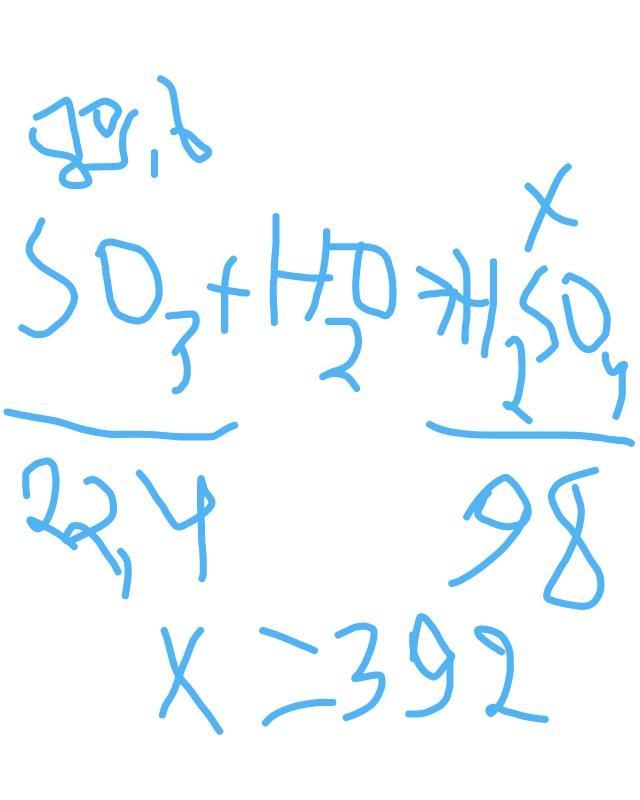 x
SO3 + H2O => H2SO4
22,4 98
x = 392